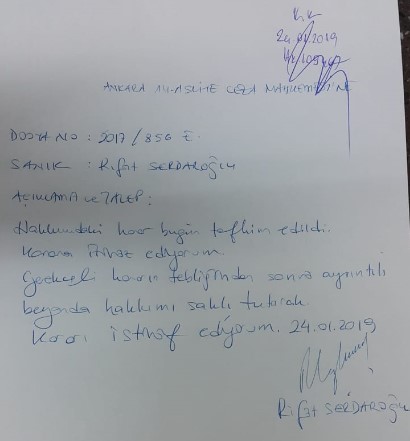 K.K
24.01.2019
ANKARA ASLİYE CEZA MAHKEMESİNE
DOSYA NO : 2017/856 E.
SANIK : Rifat SERDAROĞLU
AÇIKLAMA ve TALEP :
Hakkımdaki karar bugün tefhim edildi.
Karara itiraz ediyorum.
Gerekçeli kararın tebliğinden sonra ayrıntılı
beyanda hakkımı saklı tutarak
Kararı istinaf ediyorum. 24.01.2019
Rifat SERDAROĞLU